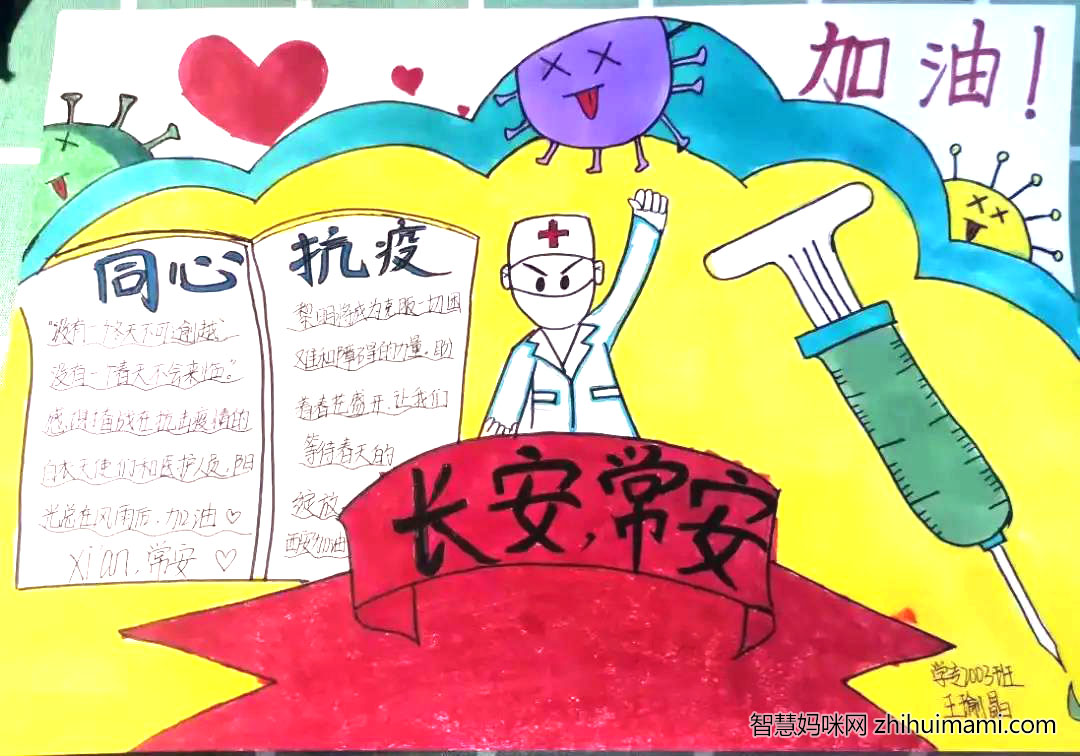 加油！
同心
抗疫
“没有一个冬天不可逾越、
没有一个春天不会来临.”
感恩奋战在抗击疫情的
白衣天使们和医护人员,阳
光总在风雨后.加油♡
xian,常安♡
黎明将成为克服一切困
难和障碍的力量.
着春花盛开.让我们
等待春天的
绽放
西安加油
长安,常安
学专2003班
王瑜
智慧妈咪网 zhihuimami.com